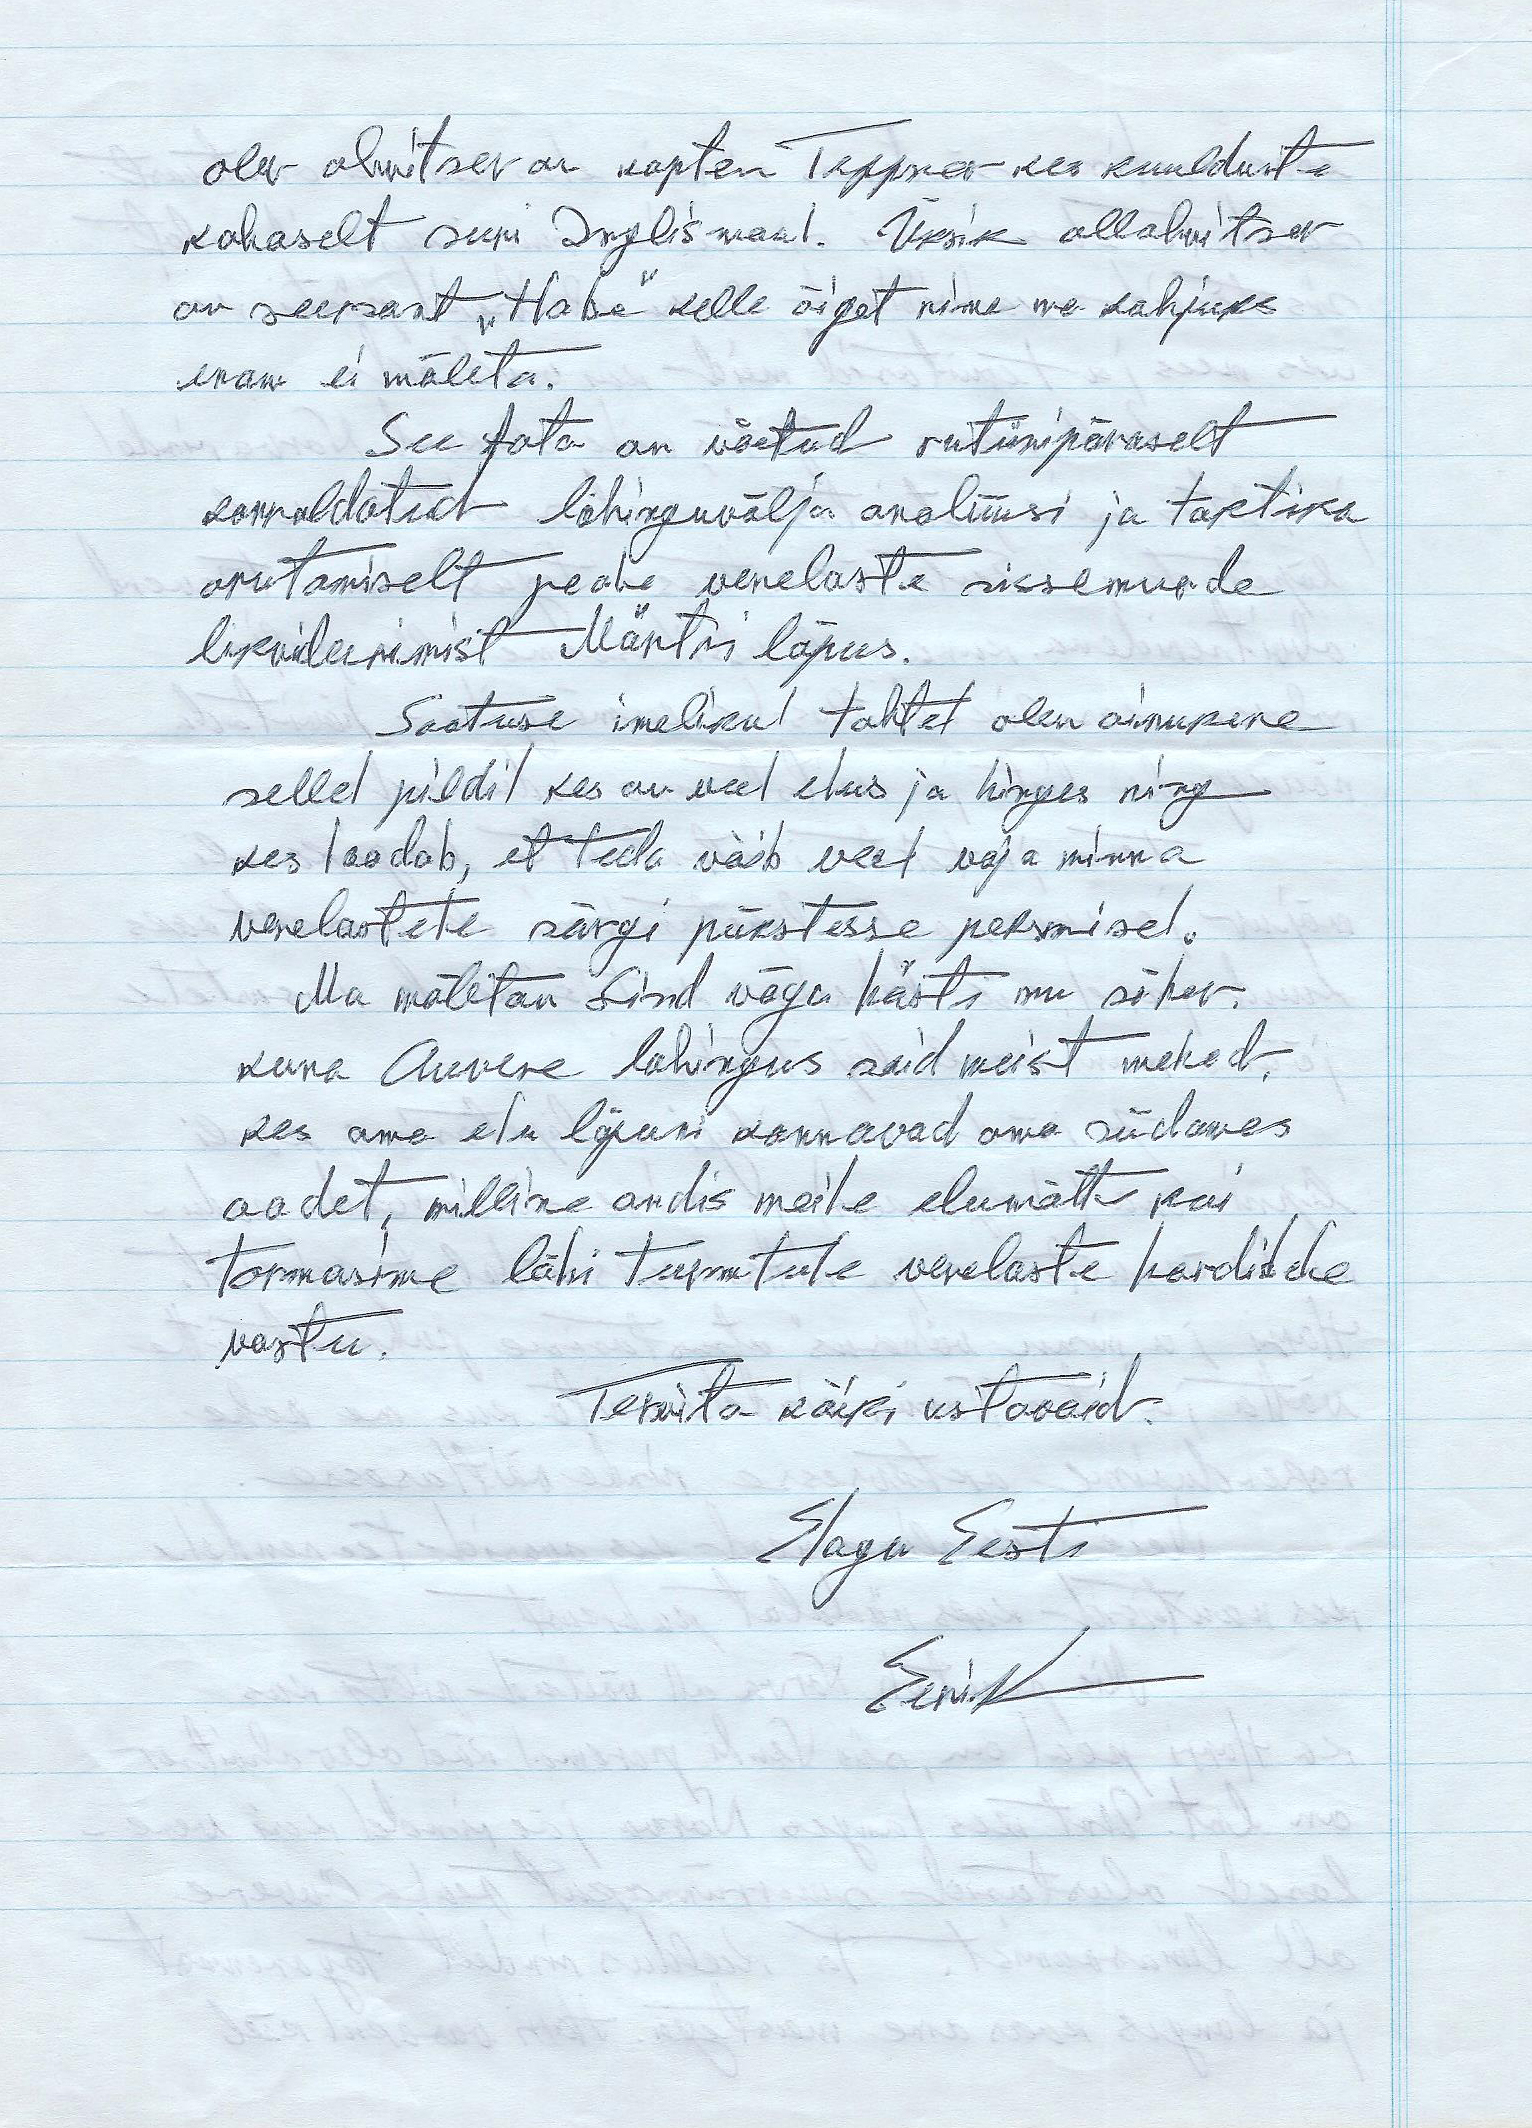 olev ohvitser on kapten Teppner kes kuulduste
kohaselt suri Inglismaal. Üksik allohvitser
on seersant „Habe" kelle õiget nime ma kahjuks
enam ei mäleta.
See foto on võetud rutiinipäraselt
korraldatud lahinguvälja analüüsi ja taktika
arutamiselt peale venelaste sissemurde
likvideerimist Märtsi lõpus.
Saatuse imelikul tahtel olen ainukene
sellel pildil kes on veel elus ja hinges ning
kes loodab, et teda võib veel vaja minna
venelastele särgi pükstesse peksmisel.
Ma mäletan Sind väga hästi mu sõber.
kuna Auvere lahingus said meist mehed,
kes oma elu lõpuni kannavad oma südames
aadet, milline andis meile elumõtte kui
tormasime läbi turemtule venelaste hordidele
vastu.
Tervita kõiki ustavaid.
Elagu Eesti
Eerik